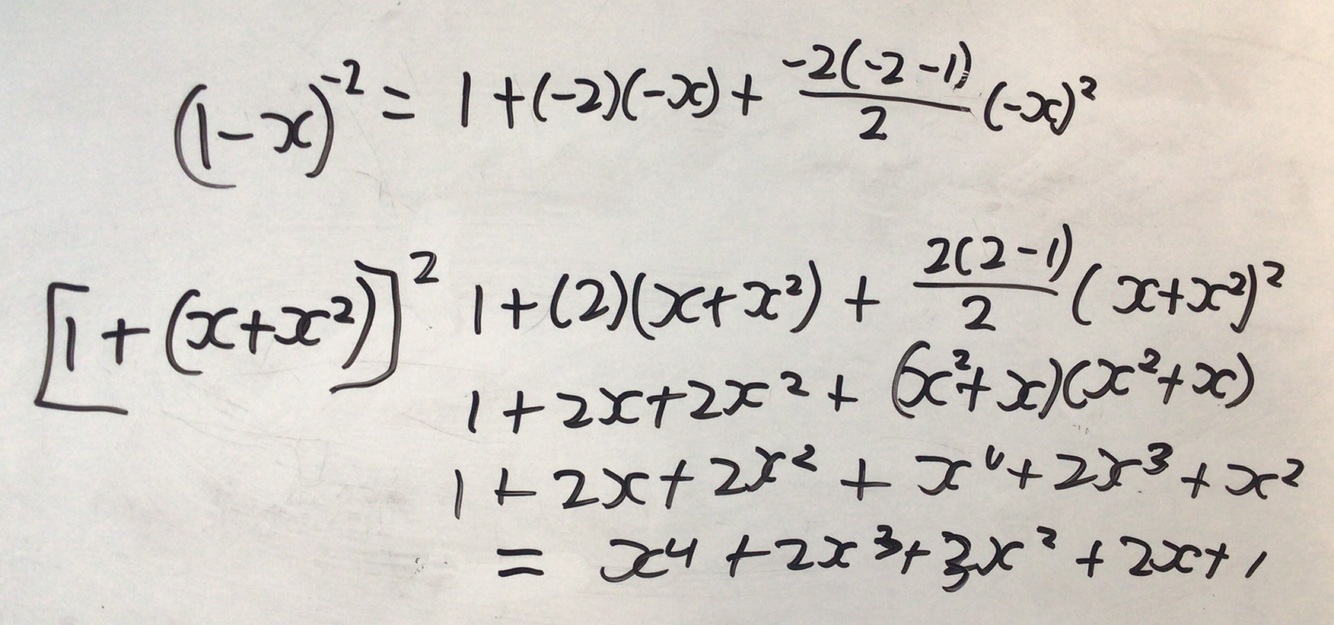 (1-x)⁻² = 1+(-2)(-x)+ -2(-2-1)/2 (-x)²
[1+(x+x²)]² 1+(2)(x+x²) + 2(2-1)/2 (x+x²)²
1+2x+2x²+ (x²+x)(x²+x)
1+2x+2x² + x⁴+2x³+x²
= x⁴+2x³+3x²+2x+1